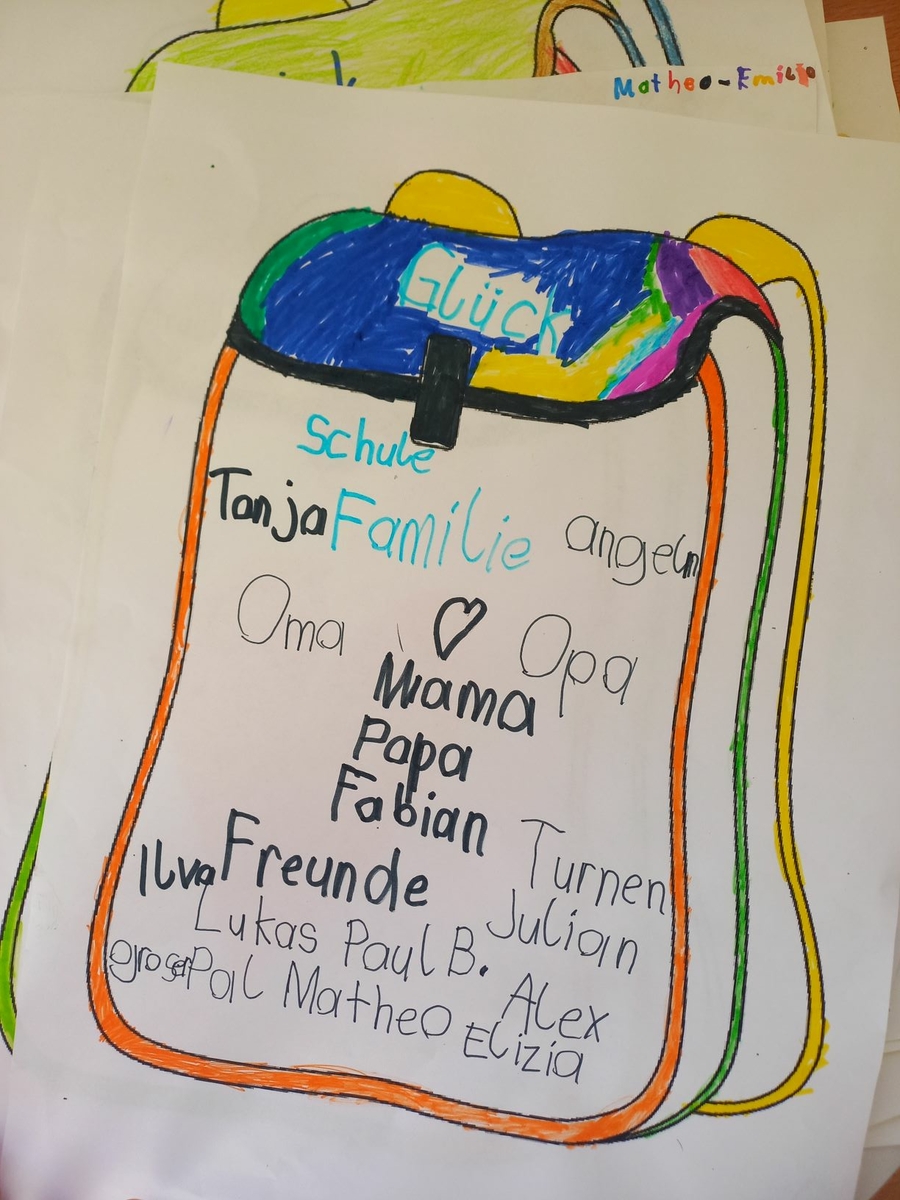 Matheo-Emilio
Glück
Schule
Tanja Familie angeln
Oma Opa
Mama
Papa
Fabian
Turnen
Ilva Freunde
Lukas Paul B. Julian
Pal Matheo Alex
Elizia